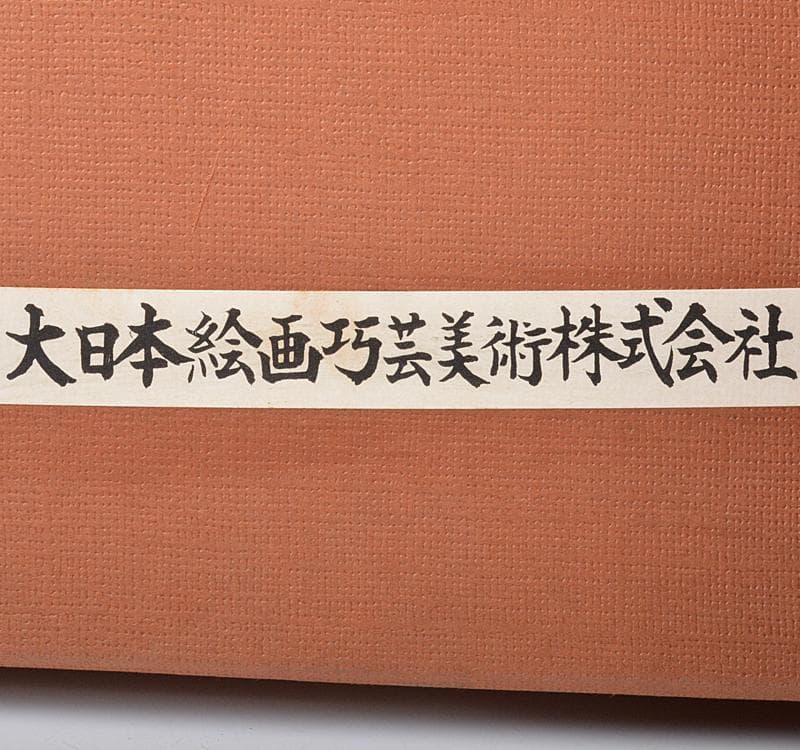 大日本絵画巧芸美術株式会社